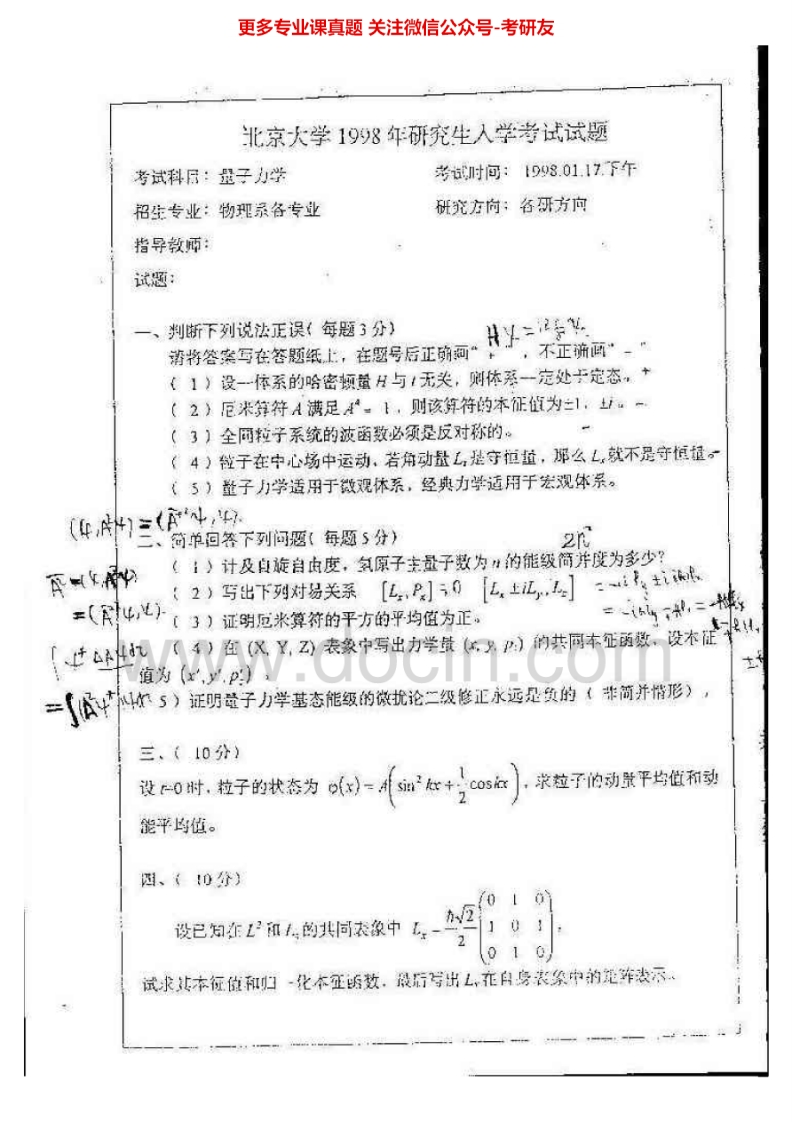 更多专业课真题 关注微信公众号-考研友
北京大学 1998 年研究生入学考试试题
考试科目：量子力学 考试时间： 1998.01.17.下午
招生专业：物理系各专业 研究方向：各研方向
指导教师：
试题：
一、判断下列说法正误（每题 3 分）
请将答案写在答题纸上，在题号后正确画“ + ，不正确画“ - ”
（1）设一体系的哈密顿量 H 与 t 无关，则体系一定处于定态。 +
（2）厄米算符 A 满足 A⁴ = 1，则该算符的本征值为±1，±i。 -
（3）全同粒子系统的波函数必须是反对称的。 -
（4）粒子在中心场中运动、若角动量 Lz 是守恒量，那么 Lx 就不是守恒量。-
（5）量子力学适用于微观体系，经典力学适用于宏观体系。
二、简单回答下列问题（每题 5 分） 2n²
（1）计及自旋自由度，氢原子主量子数为 n 的能级简并度为多少？
（2）写出下列对易关系 [Lx, Px] =0 [Lx ± iLy, Lz]
（3）证明厄米算符的平方的平均值为正。
（4）在 (X, Y, Z) 表象中写出力学量 (x, y, pz) 的共同本征函数，设本征
值为 (x', y', p'z)；
5）证明量子力学基态能级的微扰论二级修正永远是负的（非简并情形），
www.docin.com
三、（10 分）
设 t=0 时，粒子的状态为 φ(x) = A(sin² kx + 1/2 cos kx)，求粒子的动量平均值和动
能平均值。
四、（10 分）
设已知在 L² 和 Lz 的共同表象中 Lx = ħ√2/2 (0 1 0
1 0 1
0 1 0)，
试求其本征值和归一化本征函数，最后写出 Lx 在自身表象中的矩阵表示。